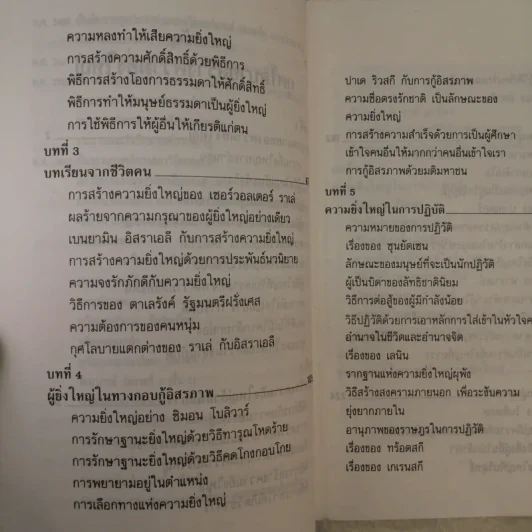 ความหลงทำให้เสียความยิ่งใหญ่
การสร้างความศักดิ์สิทธิ์ด้วยพิธีการ
พิธีการสร้างโองการธรรมดาให้ศักดิ์สิทธิ์
พิธีการทำให้มนุษย์ธรรมดาเป็นผู้ยิ่งใหญ่
การใช้พิธีการให้ผู้อื่นให้เกียรติแก่ตน
บทที่ 3
บทเรียนจากชีวิตคน
การสร้างความยิ่งใหญ่ของ เซอร์วอลเตอร์ ราเล่
ผลร้ายจากความกรุณาของผู้ยิ่งใหญ่อย่างเดียว
เบนยามิน อิสราเอลี กับการสร้างความยิ่งใหญ่
การสร้างความยิ่งใหญ่ด้วยการประพันธ์นวนิยาย
ความจงรักภักดีกับความยิ่งใหญ่
วิธีการของ ตาเลรังค์ รัฐมนตรีฝรั่งเศส
ความต้องการของคนหนุ่ม
กุศโลบายแตกต่างของ ราเล่ กับอิสราเอลี
บทที่ 4
ผู้ยิ่งใหญ่ในทางกอบกู้อิสรภาพ
ความยิ่งใหญ่อย่าง ซิมอน โบลิวาร์
การรักษาฐานะยิ่งใหญ่ด้วยวิธีทารุณโหดร้าย
การรักษาฐานะยิ่งใหญ่ด้วยวิธีคดโกงกอบโกย
การพยายามอยู่ในตำแหน่ง
การเลือกทางแห่งความยิ่งใหญ่
ปาเด ริวสกี กับการกู้อิสรภาพ
ความซื่อตรงรักชาติ เป็นลักษณะของ
ความยิ่งใหญ่
การสร้างความสำเร็จด้วยการเป็นผู้ศึกษา
เข้าใจคนอื่นให้มากกว่าคนอื่นเข้าใจเรา
การกู้อิสรภาพด้วยมติมหาชน
บทที่ 5
ความยิ่งใหญ่ในการปฏิบัติ
ความหมายของการปฏิวัติ
เรื่องของ ซุนยัตเซน
ลักษณะของมนุษย์ที่จะเป็นนักปฏิวัติ
ผู้เป็นบิดาของลัทธิชาตินิยม
วิธีการต่อสู้ของผู้มีกำลังน้อย
วิธีปฏิวัติด้วยการเอาหลักการใส่เข้าในหัวใจค
อำนาจในชีวิตและอำนาจจิต
เรื่องของ เลนิน
รากฐานแห่งความยิ่งใหญ่ผุพัง
วิธีสร้างสงครามภายนอก เพื่อระงับความ
ยุ่งยากภายใน
อานุภาพของราษฎรในการปฏิวัติ
เรื่องของ ทร็อตสกี
เรื่องของ เกเรนสกี